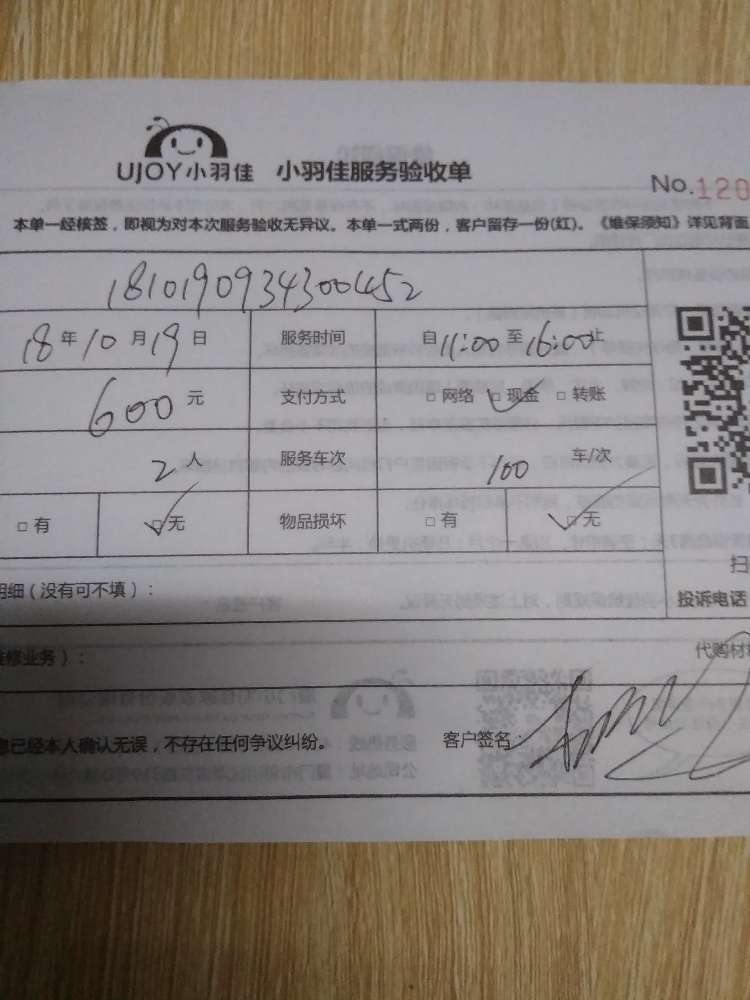 UJOY小羽佳 小羽佳服务验收单
No.120
本单一经核签，即视为对本次服务验收无异议。本单一式两份，客户留存一份(红)。《维保须知》详见背面
1810190934300452
18年10月19日 服务时间 自11:00至16:00止
600元 支付方式 □网络 □现金 □转账
2人 服务车次 100 车/次
□有 □无 物品损坏 □有 □无
明细（没有可不填）：
扫
投诉电话
维修业务）：
代购材
息已经本人确认无误，不存在任何争议纠纷。 客户签名：